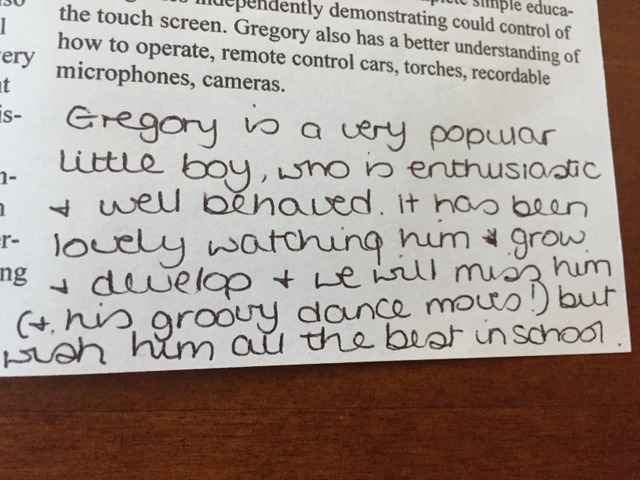 simple educa-
independently demonstrating could control of
the touch screen. Gregory also has a better understanding of
how to operate, remote control cars, torches, recordable
microphones, cameras.
Gregory is a very popular
little boy, who is enthusiastic
+ well behaved. it has been
lovely watching him + grow
+ develop + we will miss him
(+ his groovy dance moves!) but
wish him all the best in school.
l
very
is-
n-
er-
ng